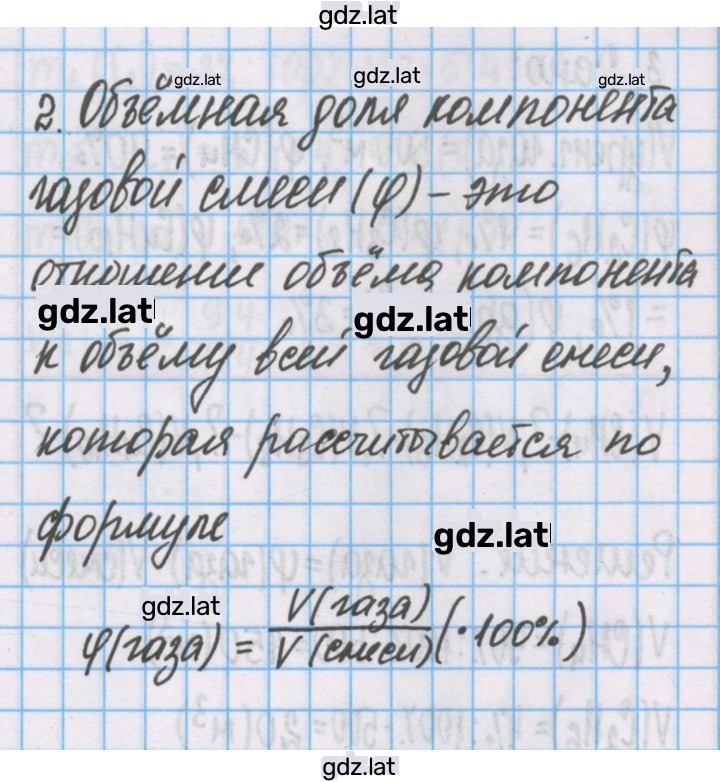 gdz.lat
gdz.lat gdz.lat gdz.lat
2. Объёмная доля компонента
газовой смеси (φ) – это
отношение объёма компонента
gdz.lat gdz.lat
к объёму всей газовой смеси,
которая рассчитывается по
формуле
gdz.lat
gdz.lat
φ(газа) = V(газа) / V(смеси) (· 100%)
gdz.lat